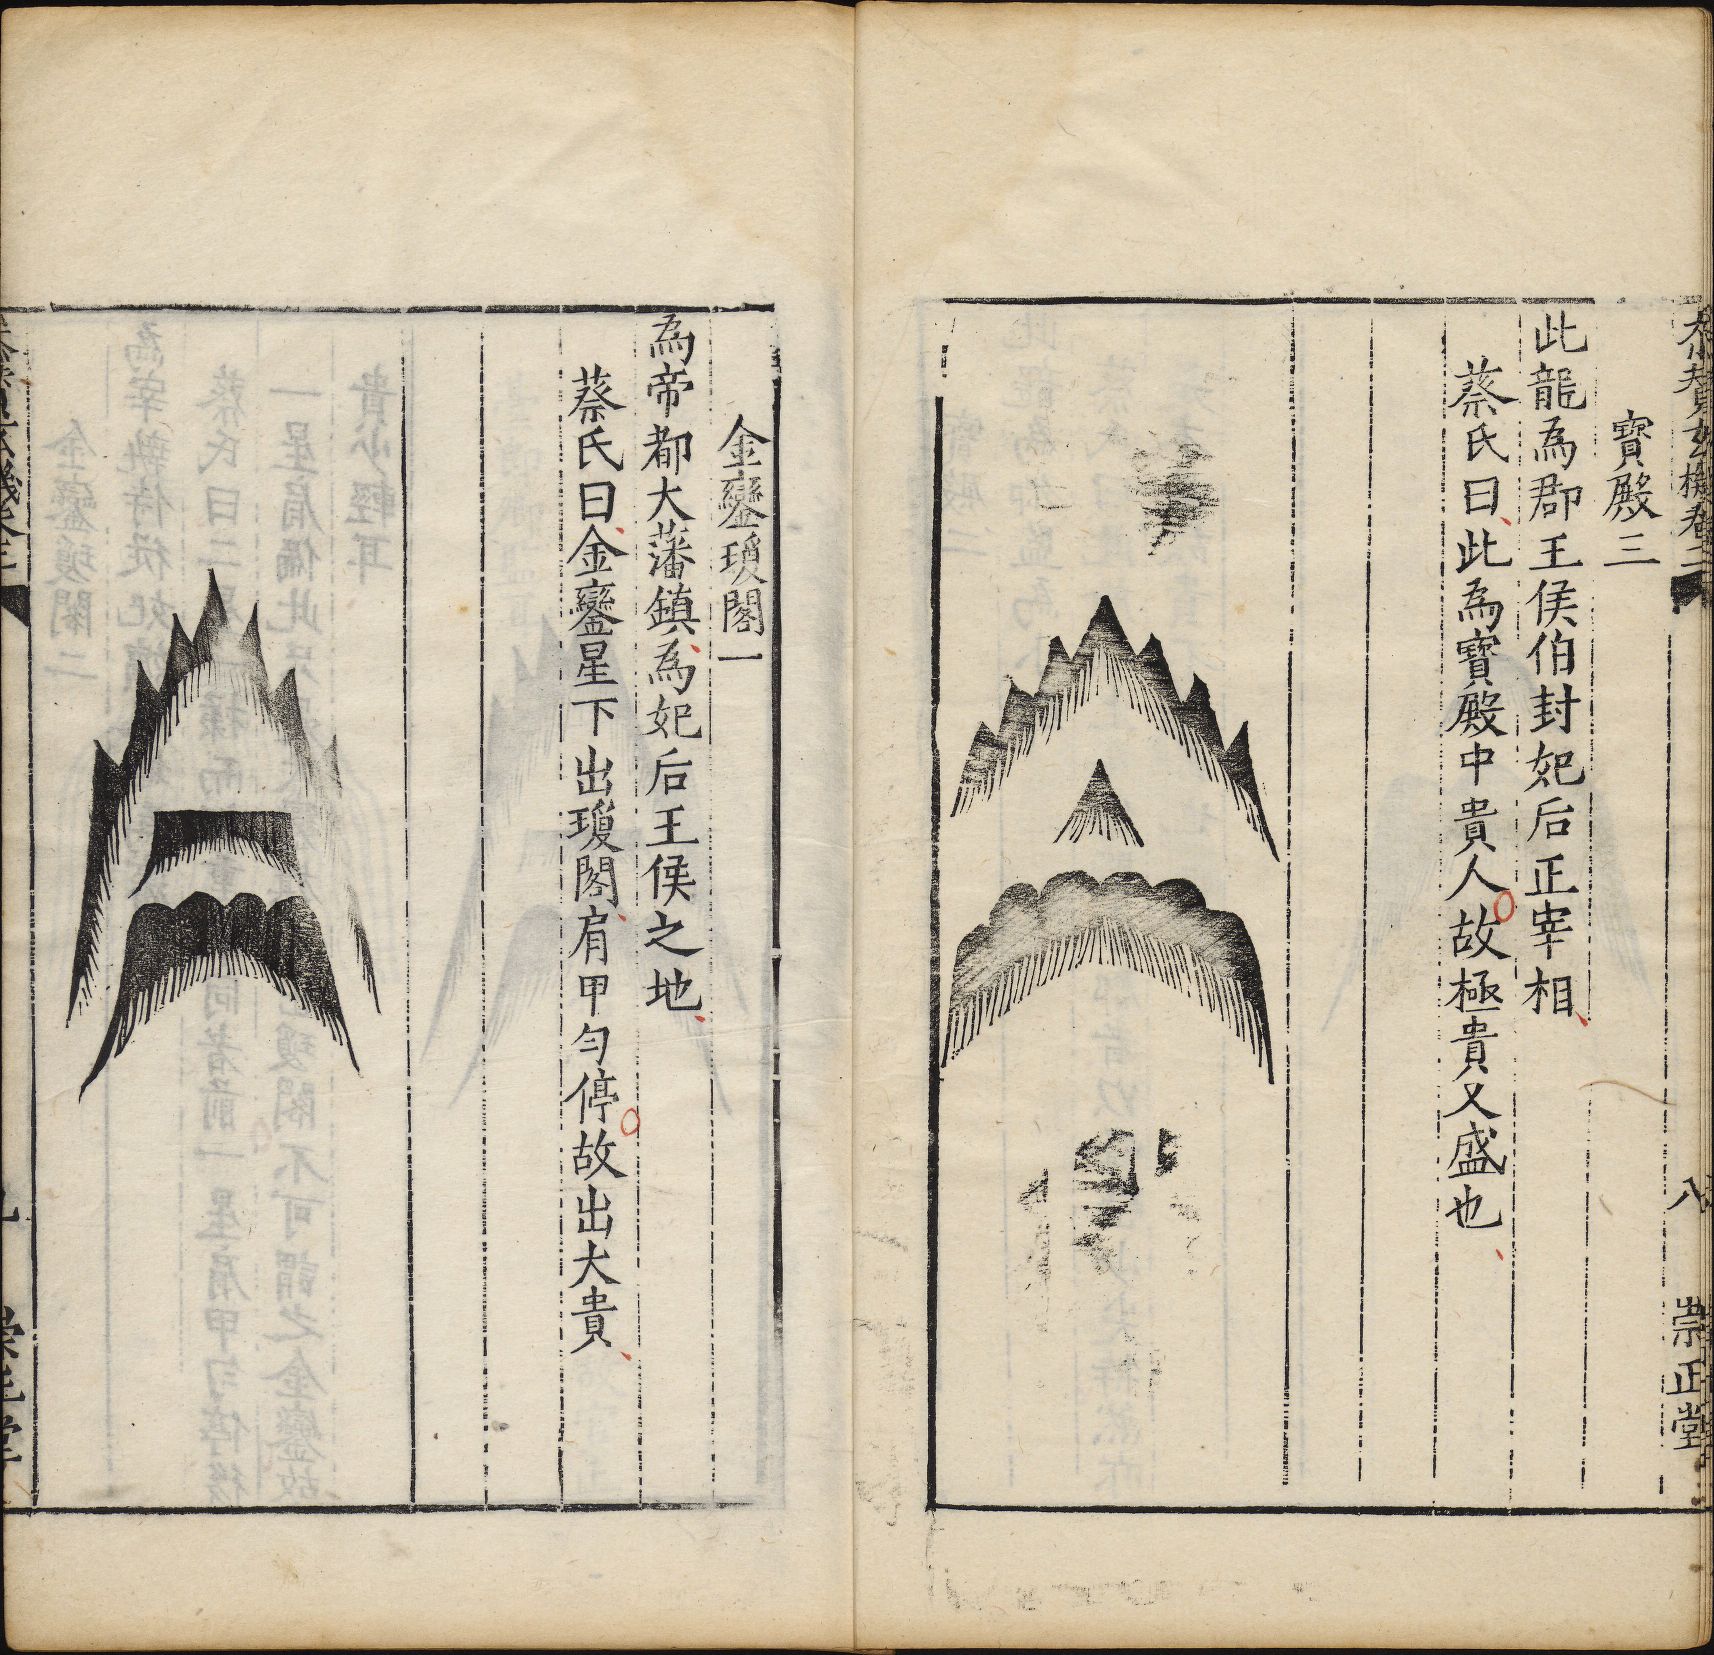 參贊玄機卷二
八
崇正堂
寶殿三
此龍為郡王侯伯封妃后正宰相
蔡氏曰此為寶殿中貴人故極貴又盛也
金鑾瓊閣一
為帝都大藩鎮為妃后王侯之地
蔡氏曰金鑾星下出瓊閣肩甲勻停故出大貴